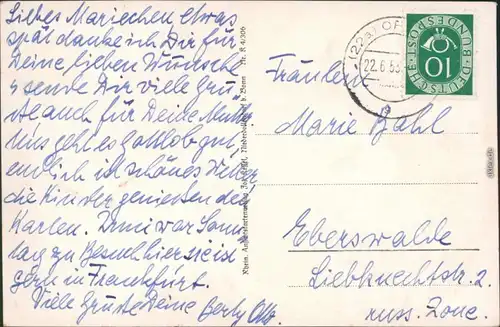 Liebes Mariechen etwas
spät danke ich Dir für
Deine lieben Wünsche
& sende Dir viele Grü
ße auch für Deine Mutter
Uns geht es gottlob gut,
endlich ist schönes Wetter
die Kinder geniessen den
Karten. Irmi war Sonn
tag zu Besuch hier sie ist
gern in Frankfurt.
Viele Grüße Deine Berty
Fräulein
Marie Bahl
Eberswalde
Liebknechtstr. 2.
russ. Zone.
DEUTSCHE BUNDESPOST
10
(22a) OF
22.6.53
Nr. K 4/306